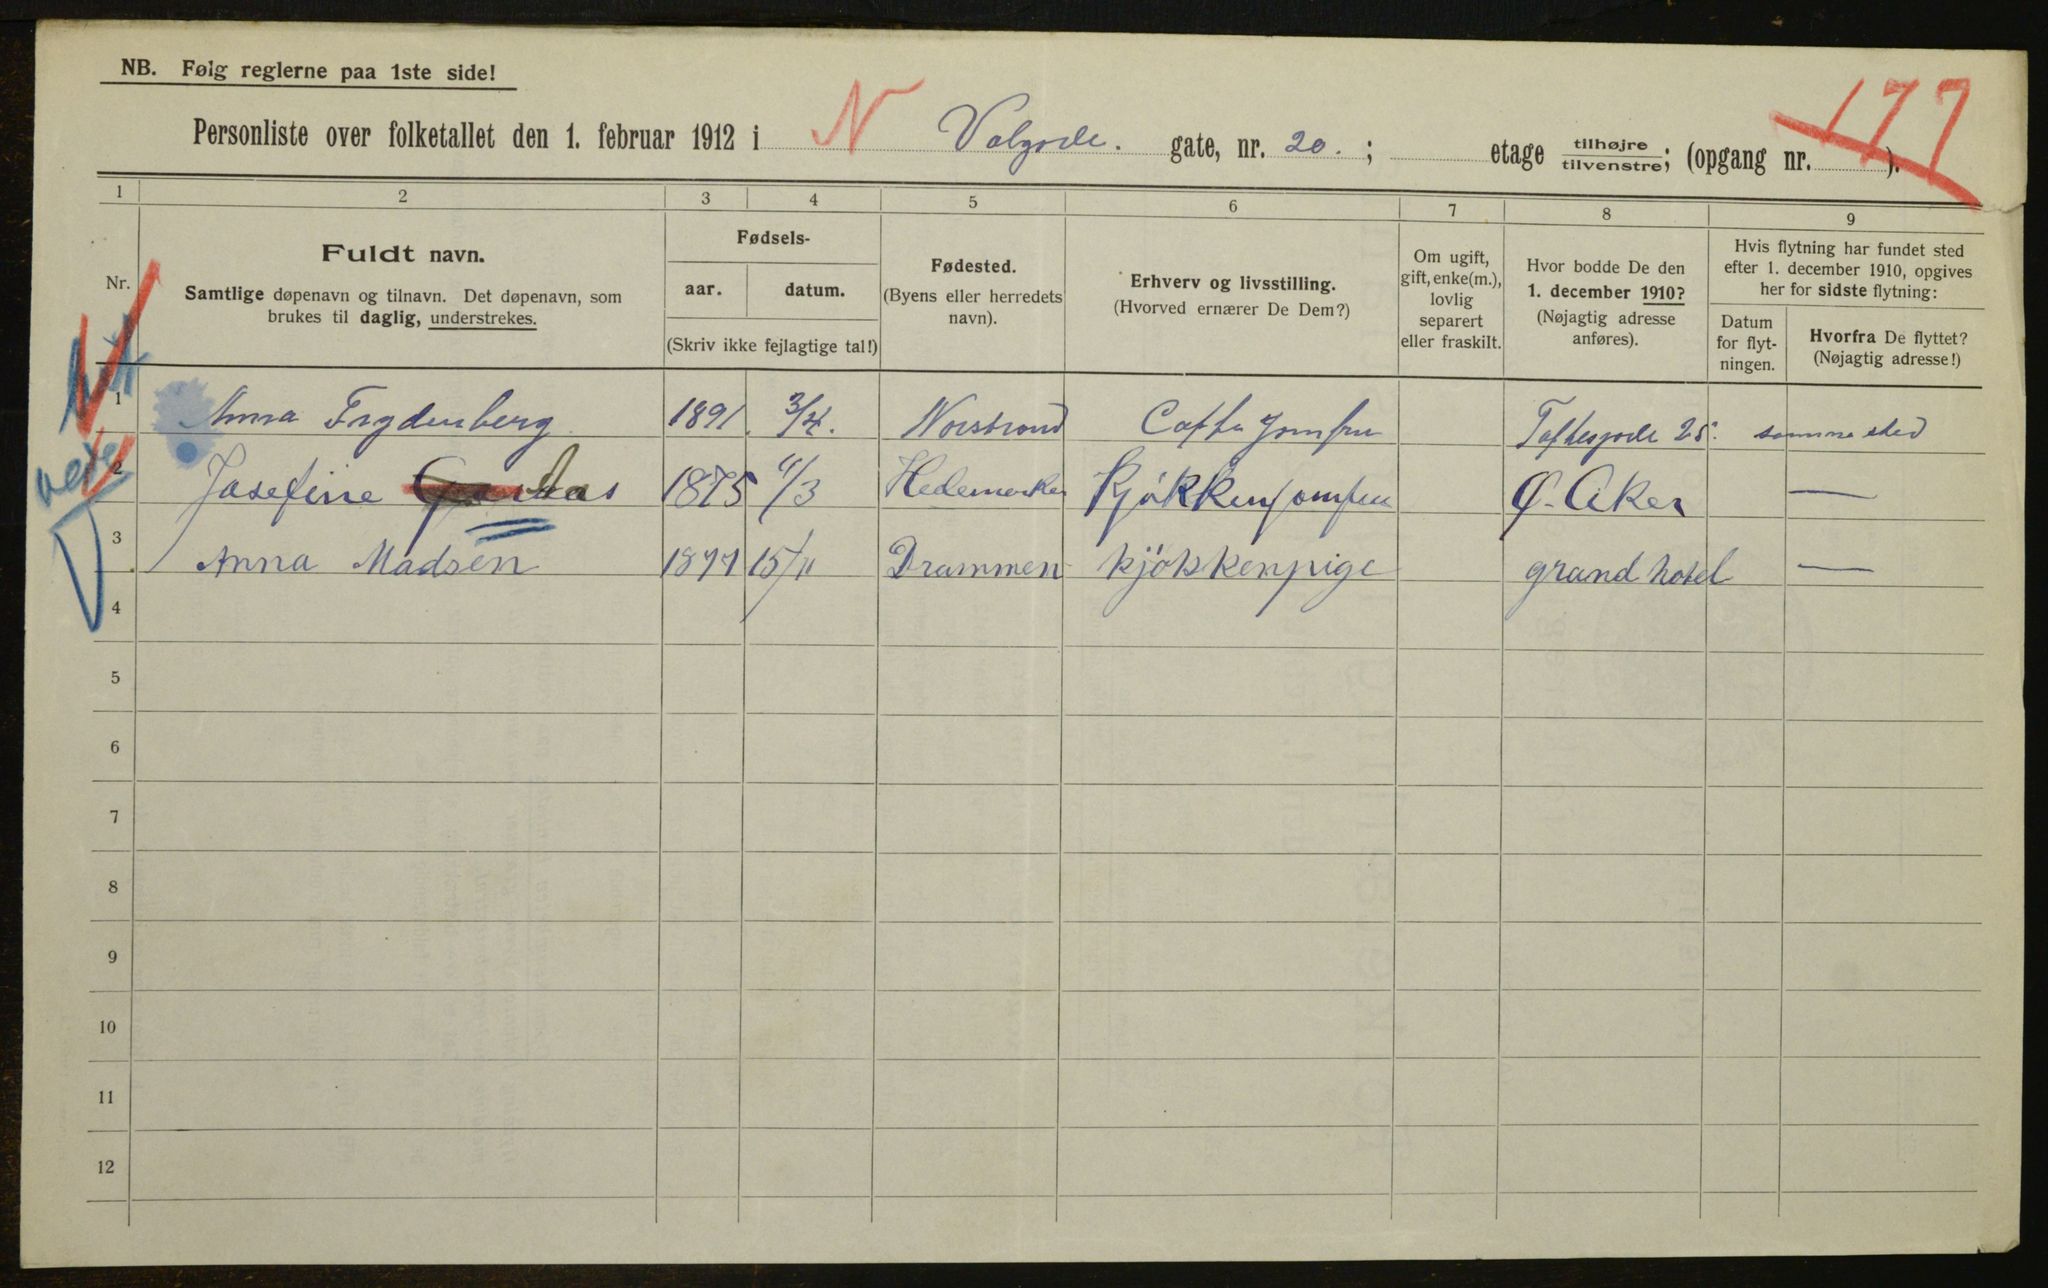 NB. Følg reglerne paa 1ste side!
177
Personliste over folketallet den 1. februar 1912 i N Volgade. gate, nr. 20. ; etage tilhøjre/tilvenstre; (opgang nr. ).
1 2 3 4 5 6 7 8 9
Nr.
Fuldt navn.
Samtlige døpenavn og tilnavn. Det døpenavn, som
brukes til daglig, understrekes.
Fødsels-
aar. datum.
(Skriv ikke fejlagtige tal!)
Fødested.
(Byens eller herredets
navn).
Erhverv og livsstilling.
(Hvorved ernærer De Dem?)
Om ugift,
gift, enke(m.),
lovlig
separert
eller fraskilt.
Hvor bodde De den
1. december 1910?
(Nøjagtig adresse
anføres).
Hvis flytning har fundet sted
efter 1. december 1910, opgives
her for sidste flytning:
Datum
for flyt-
ningen.
Hvorfra De flyttet?
(Nøjagtig adresse!)
1 Anna Frydenberg 1891 3/4. Norstrand Caffe Jomfru Toftesgade 25. samme sted
2 Josefine 1875 4/3 Hedemarken Kjøkkenjomfru Ø. Aker —
3 Anna Madsen 1877 15/11 Drammen kjøkkenpige grand hotel —
4
5
6
7
8
9
10
11
12